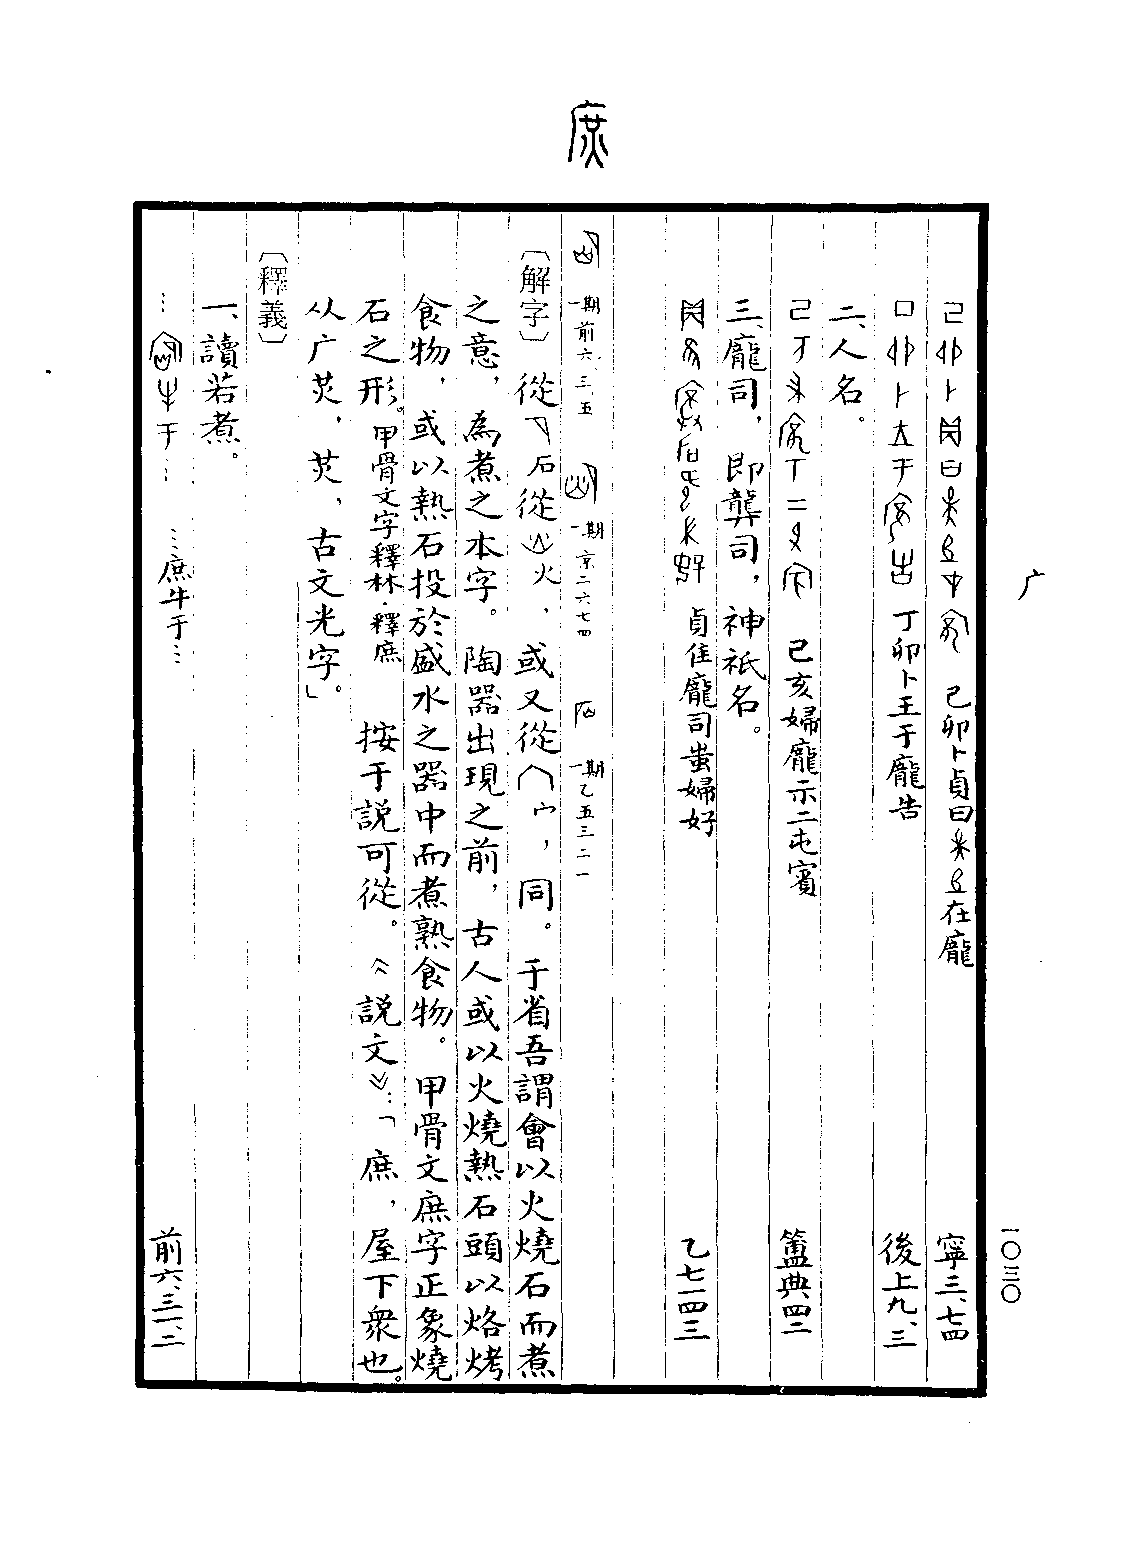 庶
广
一〇三〇
己卯卜貞曰 在龐 寧三、七四
丁卯卜王于龐告 後上九、三
二、人名。
己亥婦龐示二屯賓 簠典四二
三、龐司，即龔司，神祇名。
貞隹龐司蚩婦好 乙七一四三
一期前六、三五 一期京二六七四 一期乙五三二一
〔解字〕從石從火，或又從宀，同。于省吾謂會以火燒石而煮
之意，為煮之本字。陶器出現之前，古人或以火燒熱石頭以烙烤
食物，或以熱石投於盛水之器中而煮熟食物。甲骨文庶字正象燒
石之形。甲骨文字釋林·釋庶 按于説可從。《説文》：「庶，屋下衆也。
从广炗，炗，古文光字」。
〔釋義〕
一、讀若煮。
…庶牛于… 前六、三一、二